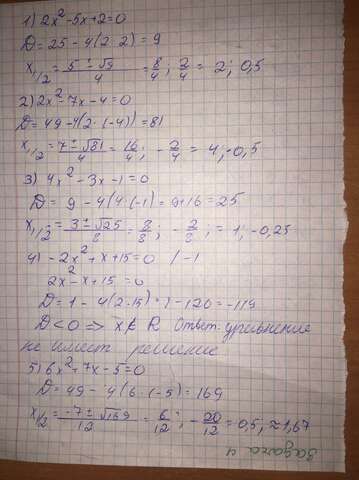 1) 2x² - 5x + 2 = 0
D = 25 - 4(2·2) = 9
x₁/₂ = (5 ± √9)/4 = 8/4; 2/4 = 2; 0,5
2) 2x² - 7x - 4 = 0
D = 49 - 4(2·(-4)) = 81
x₁/₂ = (7 ± √81)/4 = 16/4; -2/4 = 4; -0,5
3) 4x² - 3x - 1 = 0
D = 9 - 4(4·(-1) = 9+16 = 25
x₁/₂ = (3 ± √25)/8 = 8/8; -2/8; = 1; -0,25
4) -2x² + x + 15 = 0 /-1
2x² - x + 15 = 0
D = 1 - 4(2·15) = 1 - 120 = -119
D < 0 => x ∉ R Ответ: уравнение
не имеет решение
5) 6x² + 7x - 5 = 0
D = 49 - 4(6·(-5) = 169
x₁/₂ = (-7 ± √169)/12 = 6/12; -20/12 = 0,5; ≈ 1,67
Задача 4